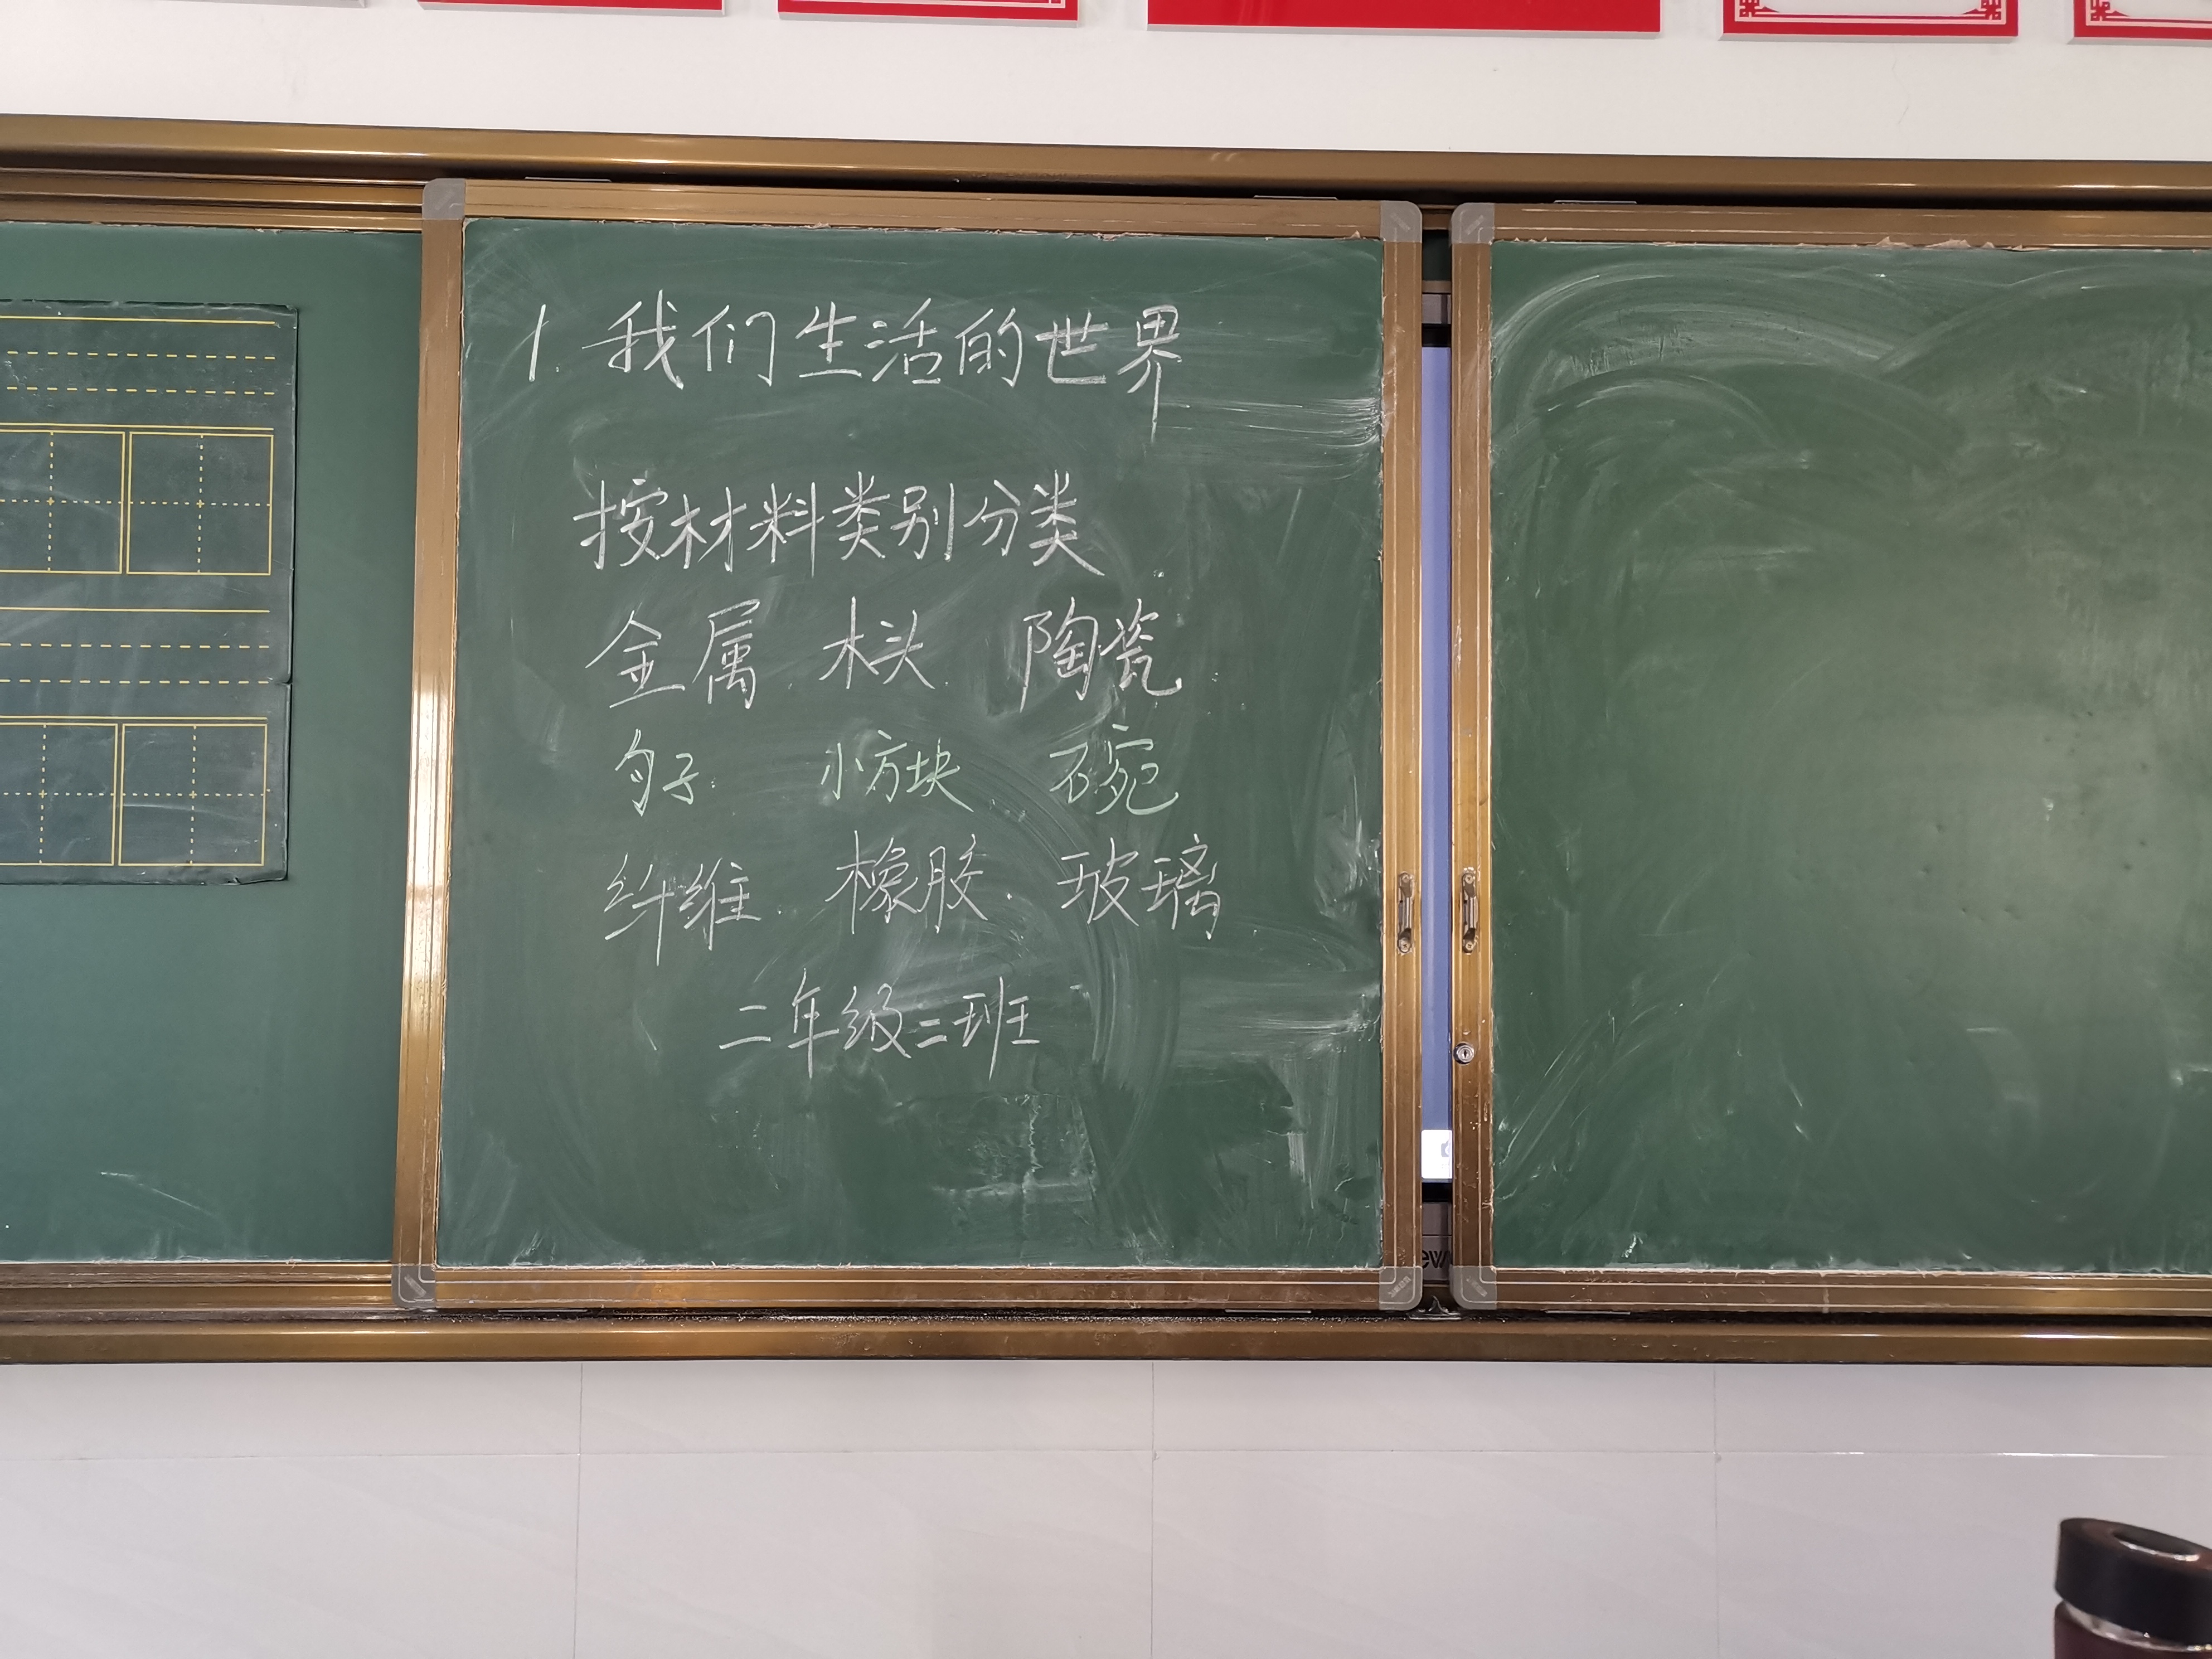 1. 我们生活的世界
按材料类别分类
金属 木头 陶瓷
勺子 小方块 碗
纤维 橡胶 玻璃
二年级二班